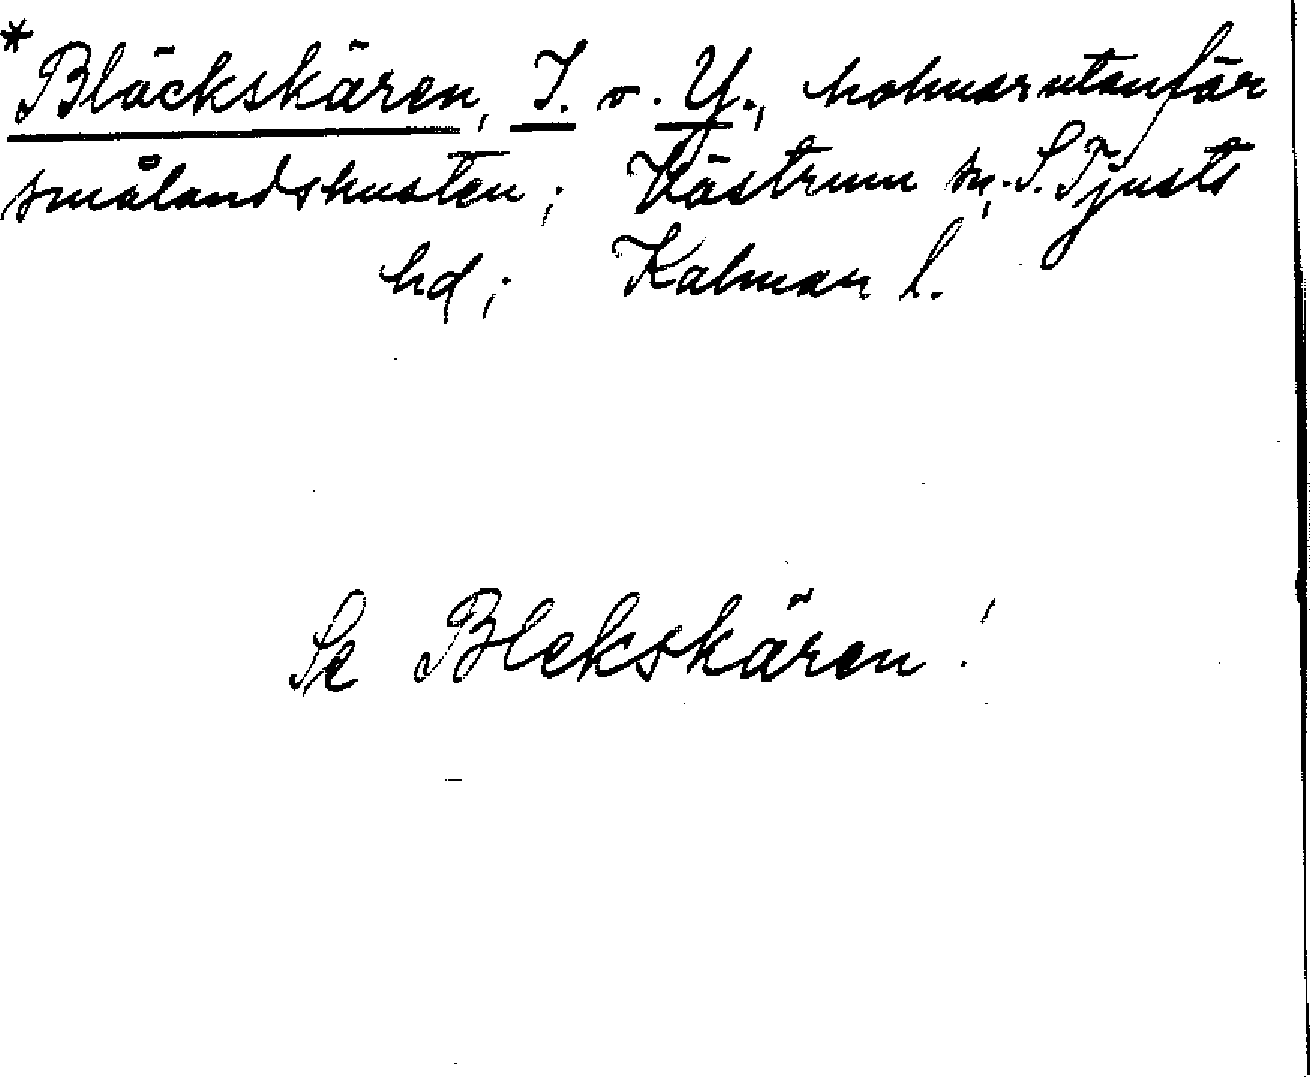 *Bläckskären, I. o. Y., holmar utanför
smålandskusten; Västrum sn, S. Tjusts
hd; Kalmar l.
Se Blekskären!